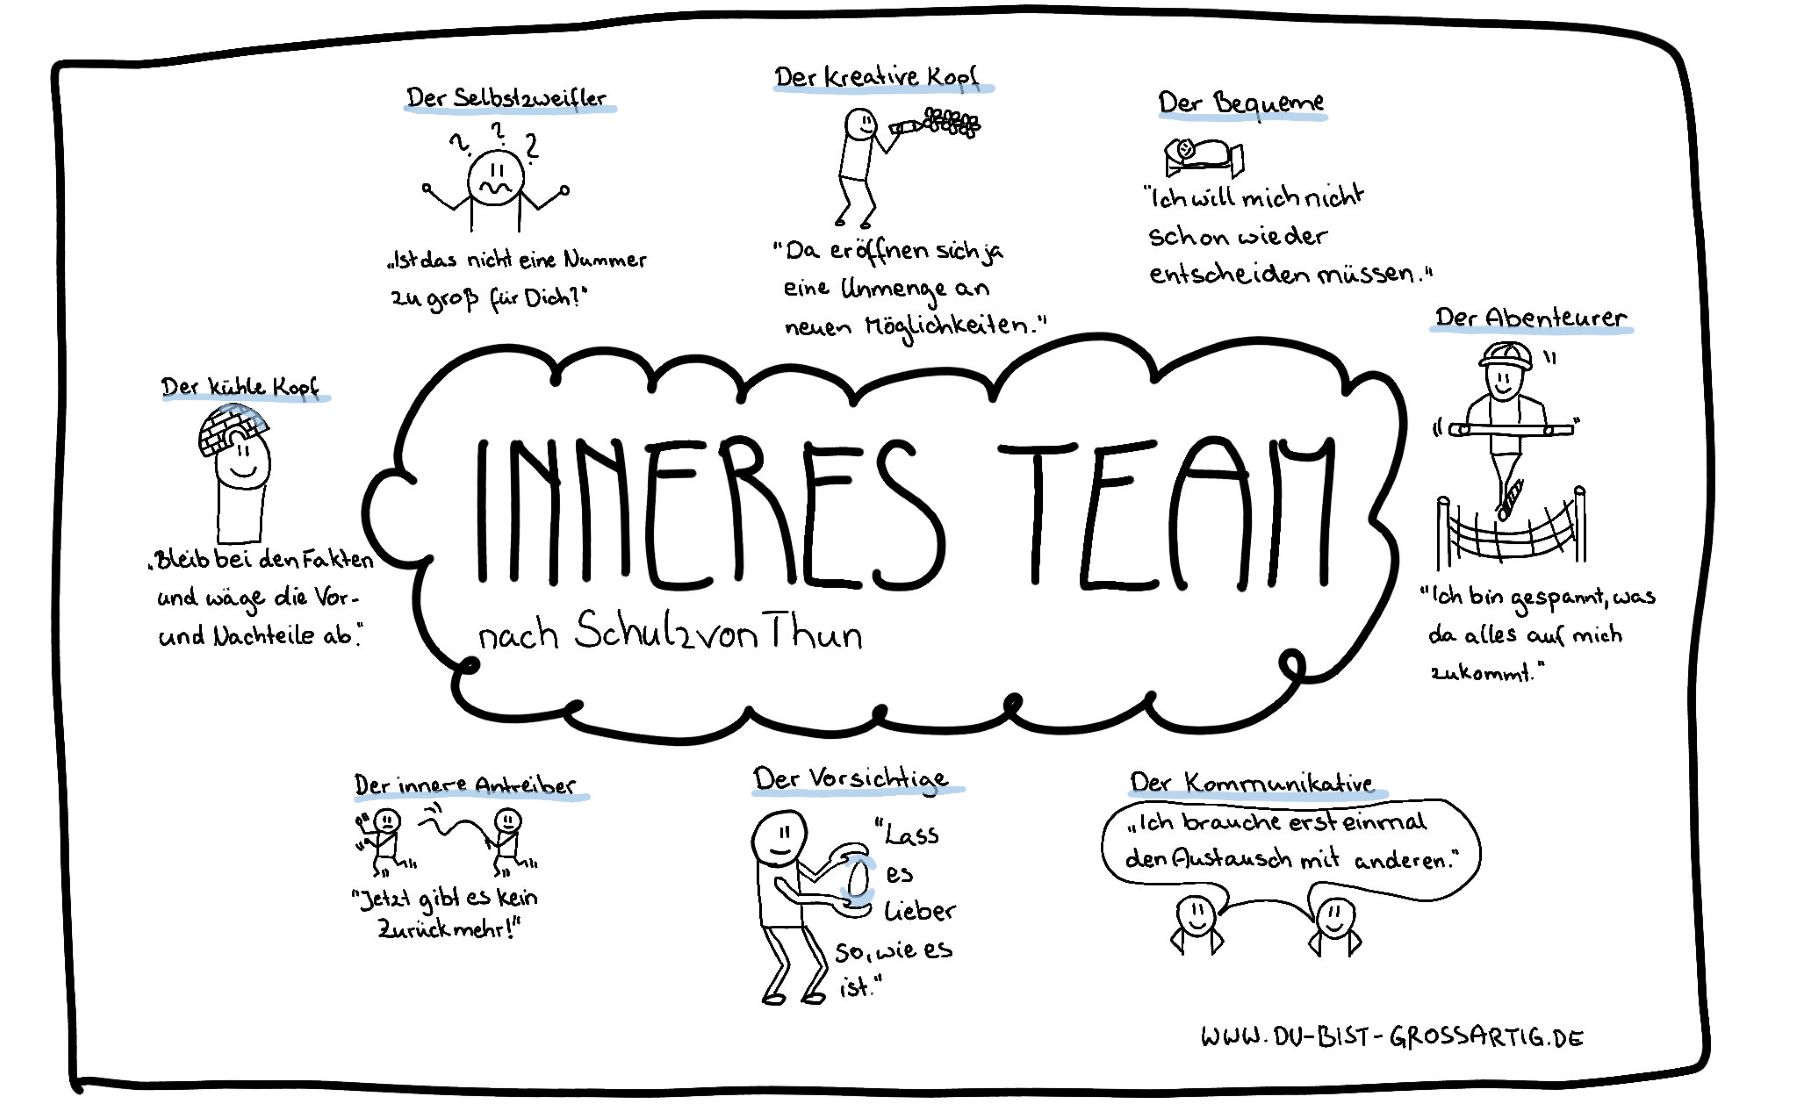 Der Selbstzweifler
? ? ?
„Ist das nicht eine Nummer
zu groß für Dich?"
Der kreative Kopf
"Da eröffnen sich ja
eine Unmenge an
neuen Möglichkeiten."
Der Bequeme
"Ich will mich nicht
schon wieder
entscheiden müssen."
Der Abenteurer
"Ich bin gespannt, was
da alles auf mich
zukommt."
Der kühle Kopf
„Bleib bei den Fakten
und wäge die Vor-
und Nachteile ab."
INNERES TEAM
nach Schulz von Thun
Der innere Antreiber
"Jetzt gibt es kein
Zurück mehr!"
Der Vorsichtige
"Lass
es
lieber
so, wie es
ist."
Der Kommunikative
„Ich brauche erst einmal
den Austausch mit anderen."
WWW.DU-BIST-GROSSARTIG.DE